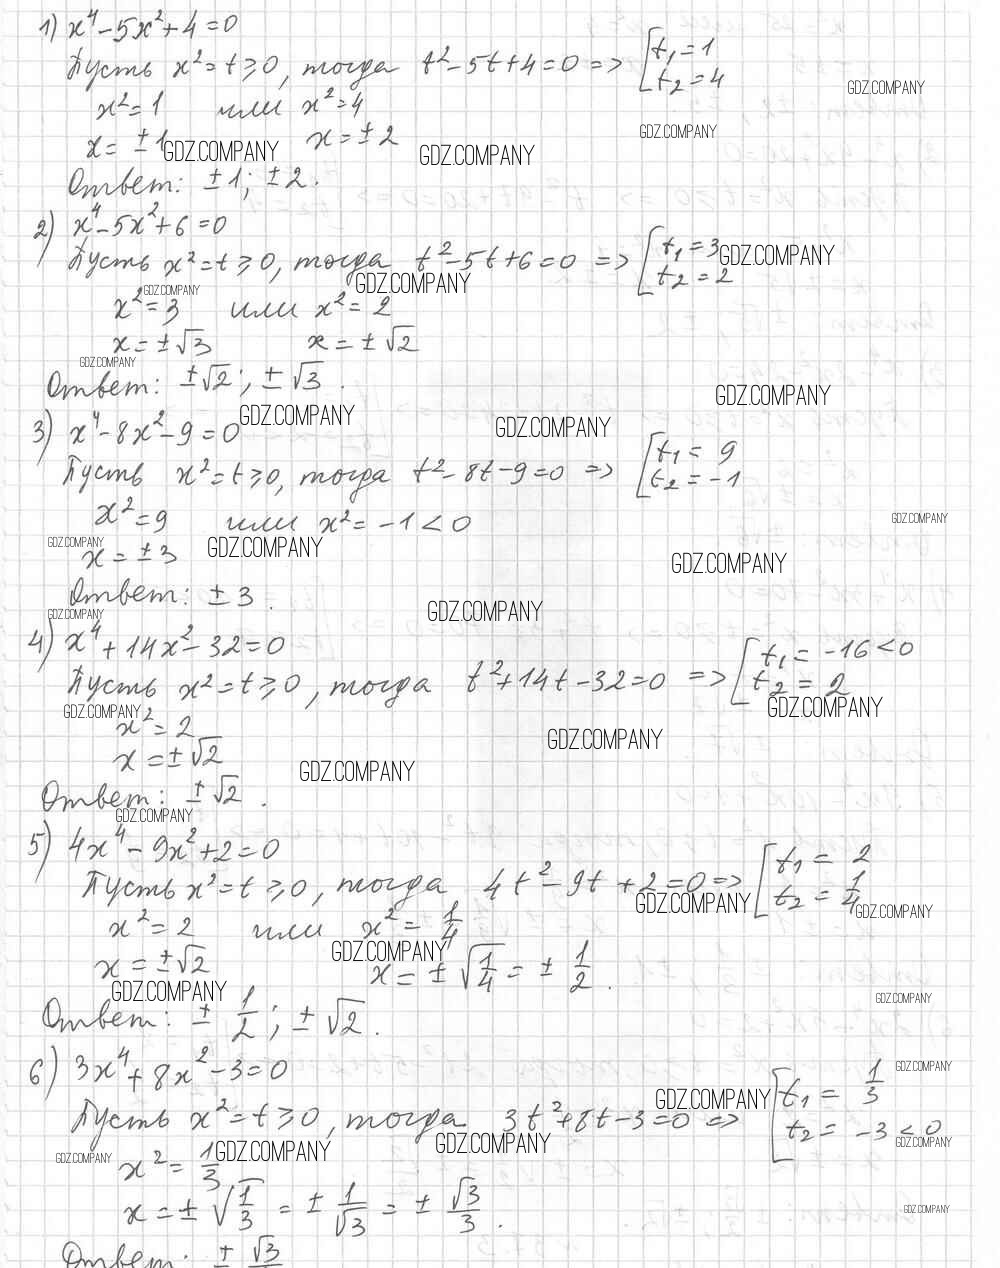 1) x⁴ - 5x² + 4 = 0
Пусть x² = t ⩾ 0, тогда t² - 5t + 4 = 0 => [t₁ = 1
t₂ = 4
GDZ.COMPANY
x² = 1 или x² = 4
GDZ.COMPANY
x = ± 1 x = ± 2
GDZ.COMPANY GDZ.COMPANY
Ответ: ± 1; ± 2.
2) x⁴ - 5x² + 6 = 0
Пусть x² = t ⩾ 0, тогда t² - 5t + 6 = 0 => [t₁ = 3
GDZ.COMPANY
t₂ = 2
GDZ.COMPANY GDZ.COMPANY
x² = 3 или x² = 2
x = ± √3 x = ± √2
GDZ.COMPANY
Ответ: ± √2; ± √3.
GDZ.COMPANY
GDZ.COMPANY GDZ.COMPANY
3) x⁴ - 8x² - 9 = 0
Пусть x² = t ⩾ 0, тогда t² - 8t - 9 = 0 => [t₁ = 9
t₂ = -1
x² = 9 или x² = -1 < 0
GDZ.COMPANY
GDZ.COMPANY GDZ.COMPANY
x = ± 3
GDZ.COMPANY
Ответ: ± 3.
GDZ.COMPANY GDZ.COMPANY
4) x⁴ + 14x² - 32 = 0
Пусть x² = t ⩾ 0, тогда t² + 14t - 32 = 0 => [t₁ = -16 < 0
t₂ = 2
GDZ.COMPANY GDZ.COMPANY
x² = 2
GDZ.COMPANY
x = ± √2
GDZ.COMPANY
Ответ: ± √2.
GDZ.COMPANY
5) 4x⁴ - 9x² + 2 = 0
Пусть x² = t ⩾ 0, тогда 4t² - 9t + 2 = 0 => [t₁ = 2
t₂ = 1/4
GDZ.COMPANY GDZ.COMPANY
x² = 2 или x² = 1/4
GDZ.COMPANY
x = ± √2 x = ± √(1/4) = ± 1/2.
GDZ.COMPANY GDZ.COMPANY
Ответ: ± 1/2; ± √2.
6) 3x⁴ + 8x² - 3 = 0
GDZ.COMPANY
GDZ.COMPANY
Пусть x² = t ⩾ 0, тогда 3t² + 8t - 3 = 0 => [t₁ = 1/3
t₂ = -3 < 0
GDZ.COMPANY GDZ.COMPANY GDZ.COMPANY GDZ.COMPANY
x² = 1/3
x = ± √(1/3) = ± 1/√3 = ± √3/3.
GDZ.COMPANY
Ответ: ± √3